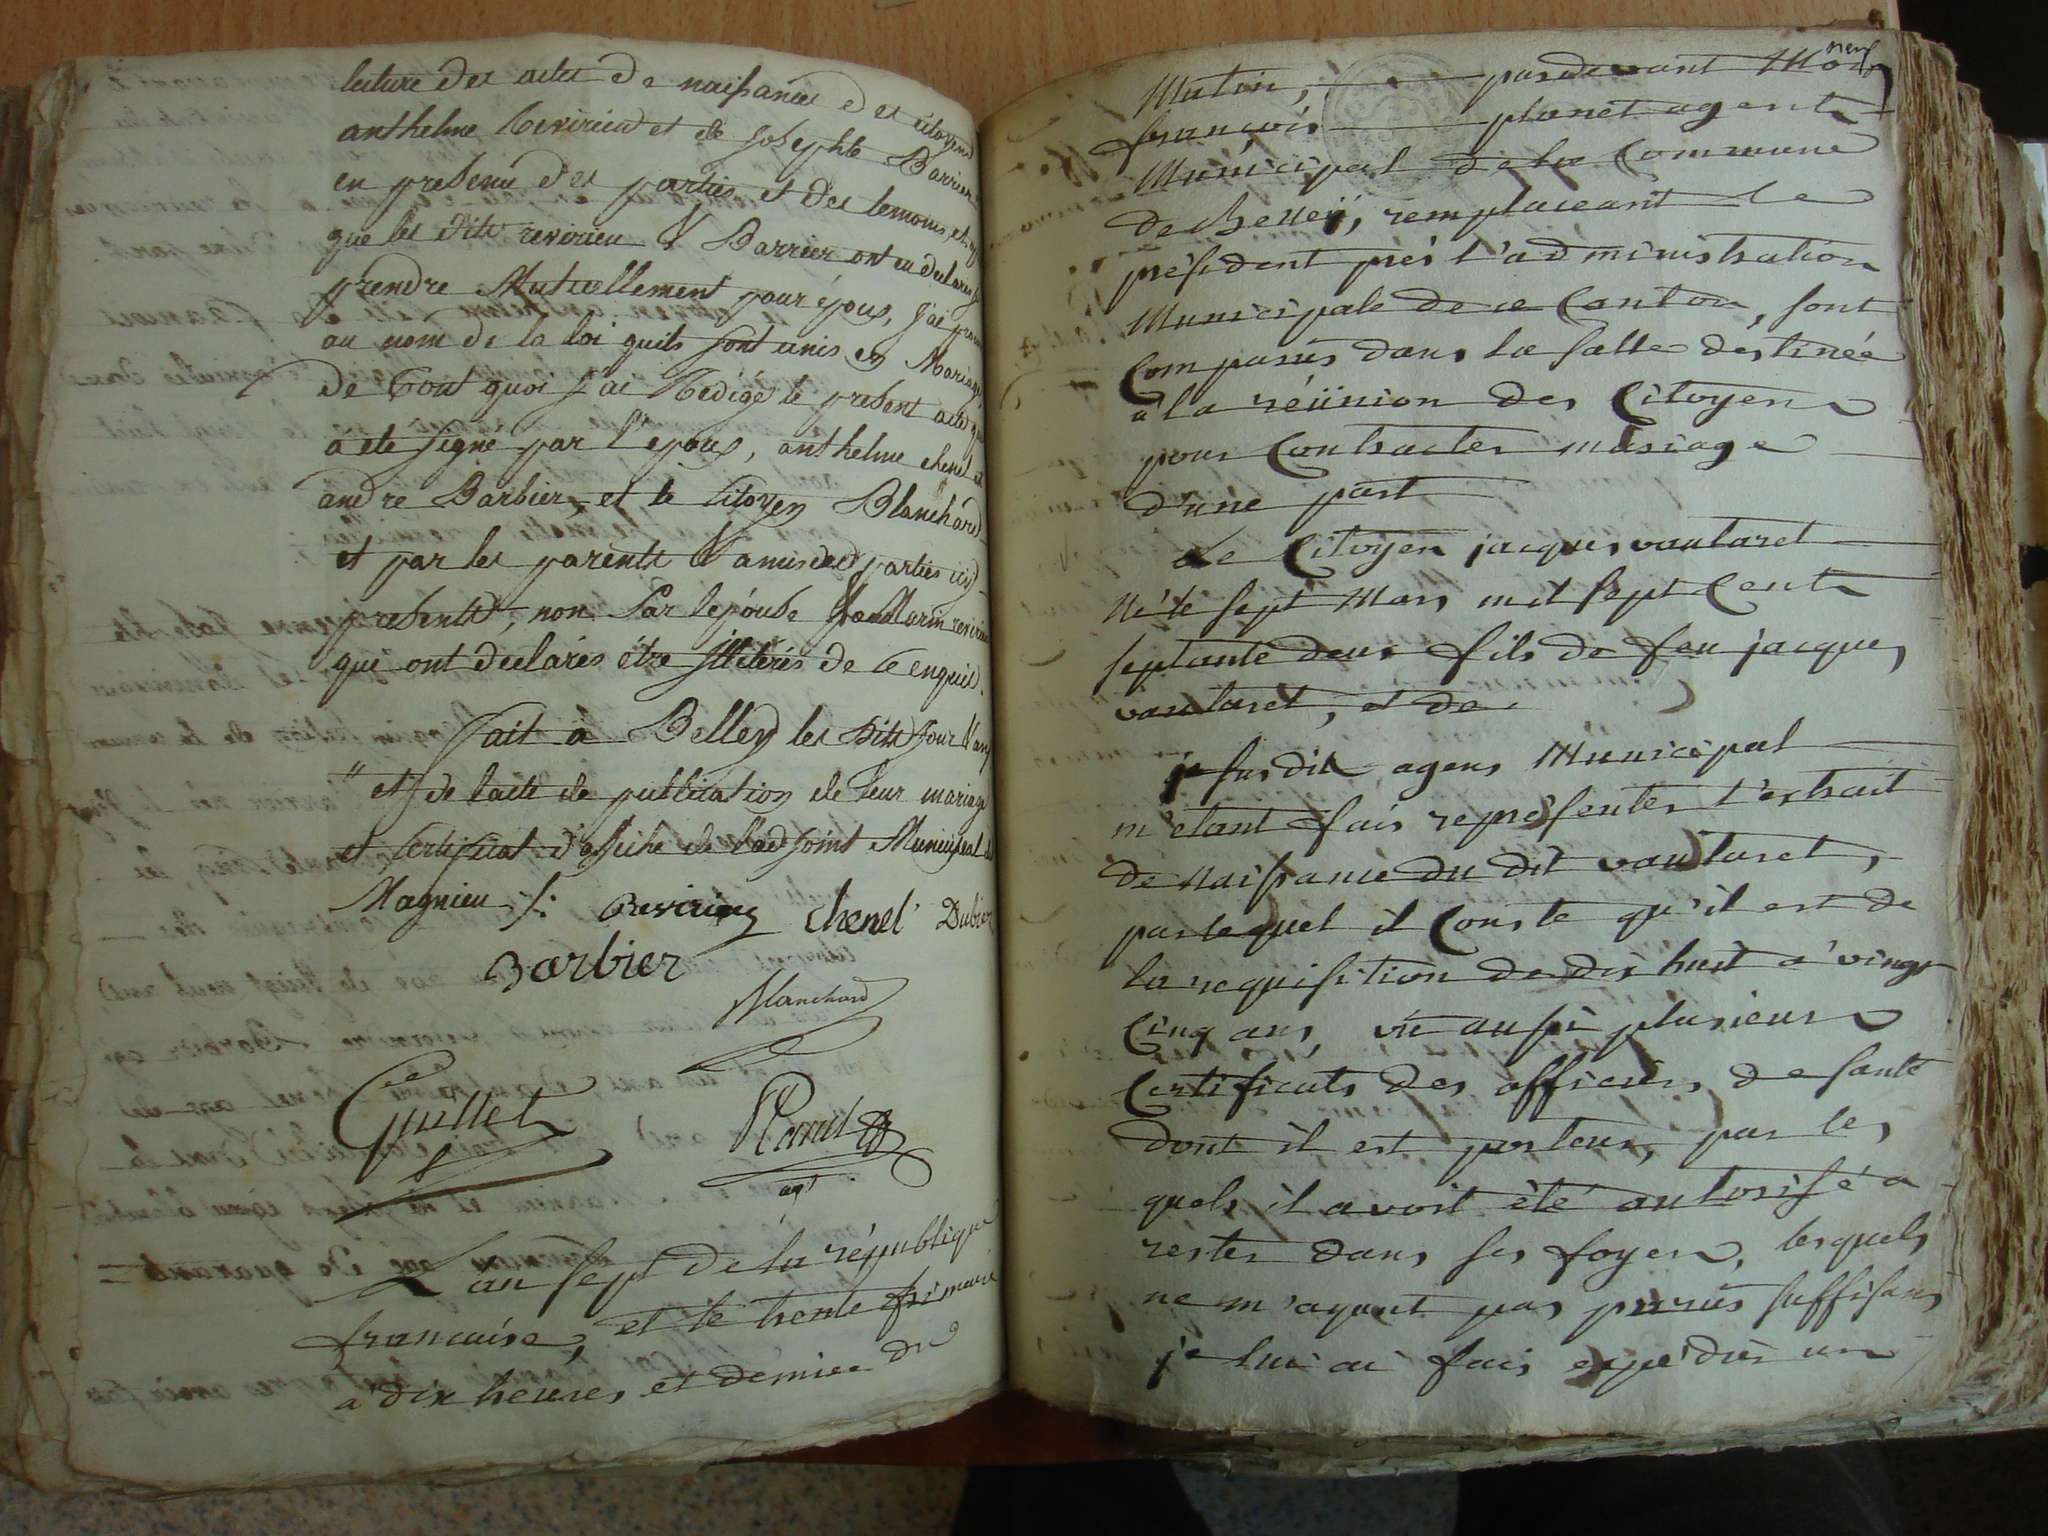 lecture des actes de naissances des citoyens
anthelme Revirieu et de Josephte Barrier
en presence des parties et des temoins, et
que les dits revirieu & Barrier ont eu declaré se
prendre Mutuellement pour épous, j'ai
au nom de la loi quils sont unis en Mariage,
De Tout quoi J'ai Rédigé le present acte qui
a été signé par l'epoux, anthelme chenel et
andre Barbier, et le Citoyen Blanchard
et par les parents & amis des parties icy
presents, non Par lepouse
que ont declarés être illiterés de ce enquis.
fait à Belley les dits Jour & an
" et de lacte de publication de leur mariage
et Certificat d'affiche de l'adjoint Municipal de
Magnieu /: Revirieu chenel Dubier
Barbier
Blanchard
Guillet
agt
L'an sept de la république
francaise, et le trente frimaire
à dix heures et demiee du
neuf
Matin, pardevant Moi
françois planet agent
Municipal de la Commune
de Belleÿ, remplaceant le
président prés l'administration
Municipale de ce Canton, sont
Comparus dans la salle destinée
à la réünion des Citoyens
pour Contracter mariage
d'une part
Le Citoyen jacques vautaret
Né le sept Mars mil sept Cent
septante deux fils de feu jacques
vautaret, et de
je susdit agens Municipal
m'etant fais représenter l'extrait
de naissance du dit vautaret,
par lequel il Conste qu'il est de
la requisition de dix huit à vingt
Cinq ans, vu aussi plusieurs
Certificats des officiers de santé
dont il est porteur, par les
quels il avoit été autorisé a
rester dans ses foyers, lesquels
ne m'ayant pas parus suffisans
je lui ai fais expedier un